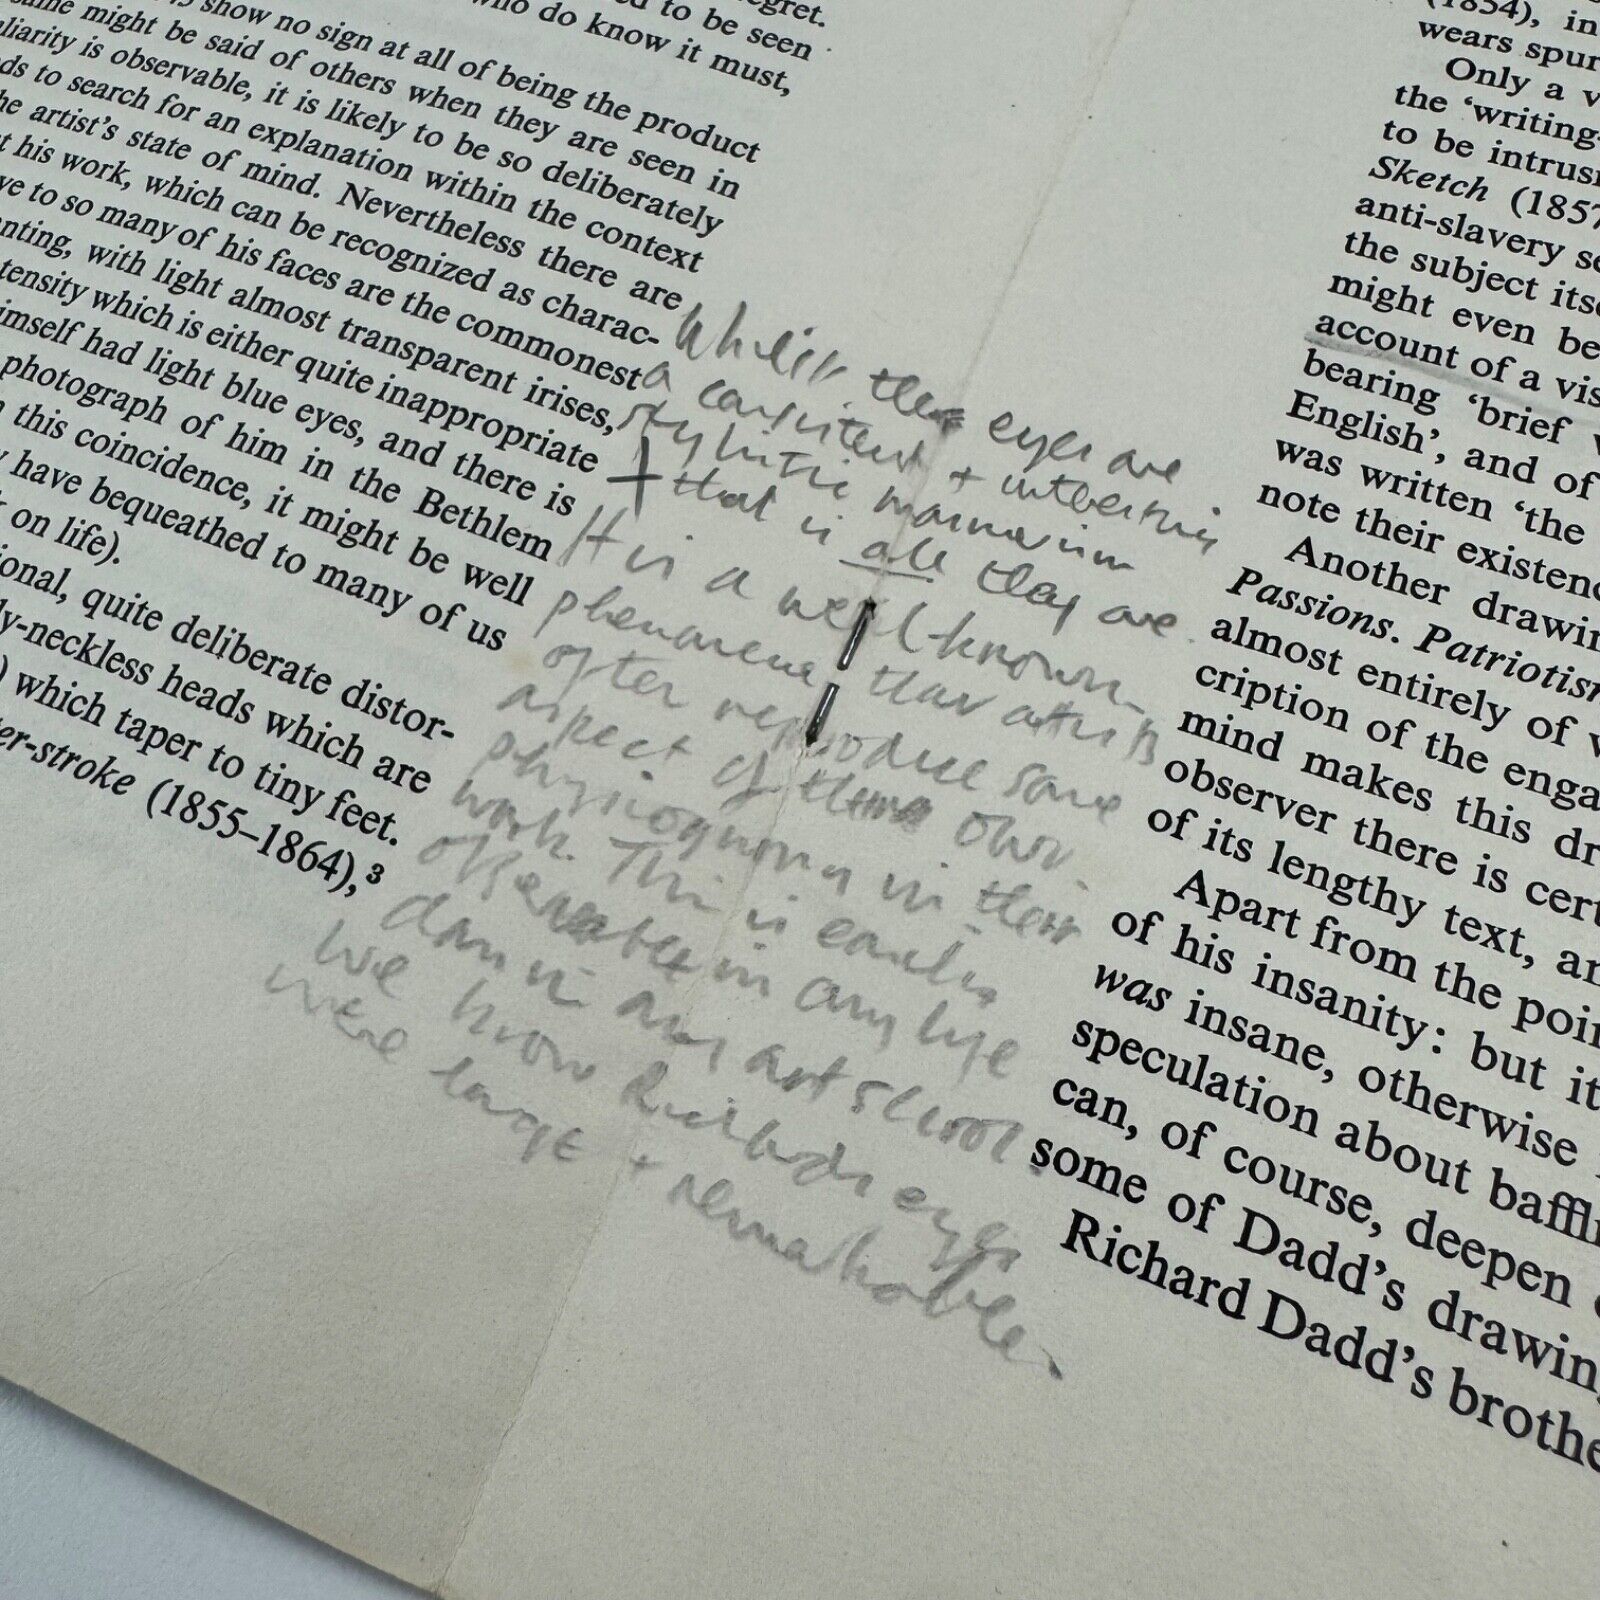 egret.
ed to be seen
who do know it must,
show no sign at all of being the product
same might be said of others when they are seen in
liarity is observable, it is likely to be so deliberately
ds to search for an explanation within the context
he artist's state of mind. Nevertheless there are
t his work, which can be recognized as charac-
ve to so many of his faces are the commonest
nting, with light almost transparent irises,
tensity which is either quite inappropriate
imself had light blue eyes, and there is
photograph of him in the Bethlem
n this coincidence, it might be well
y have bequeathed to many of us
t on life).
ional, quite deliberate distor-
ly-neckless heads which are
) which taper to tiny feet.
er-stroke (1855–1864),³
Whilst these eyes are
a consistent + interesting
stylistic mannerism
+ that is all they are.
It is a well-known
phenomena that artists
often reproduce some
aspect of their own
physiognomy in their
work. This is easily
observable in any life
class in any art school.
We know Richard's eyes
were large + remarkable.
(1854), in
wears spur
Only a v
the 'writing-
to be intrus
Sketch (1857
anti-slavery se
the subject itse
might even be
account of a vis
bearing 'brief v
English', and of
was written 'the
note their existenc
Another drawin
Passions. Patriotism
almost entirely of w
cription of the enga
mind makes this dr
observer there is cert
of its lengthy text, an
Apart from the poin
of his insanity: but it
was insane, otherwise
speculation about baffli
can, of course, deepen
some of Dadd's drawing
Richard Dadd's brothe